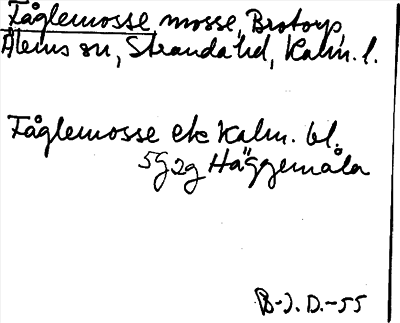 Fåglemosse mosse, Brotorp,
Ålems sn, Stranda hd, Kalm. l.
Fåglemosse ek Kalm. bl.
5G2g Häggemåla
B-J. D. -55